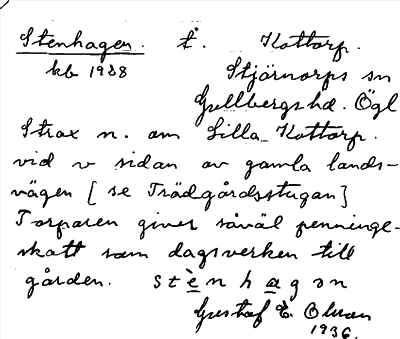 Stenhagen. t. Kottorp.
kb 1928 Stjärnorps sn
Gullbergs hd. Ögl
Strax n. om Lilla Kottorp.
vid v sidan av gamla lands-
vägen [se Trädgårdsstugan]
Torparen giver såväl penninge-
skatt som dagsverken till
gården. stènhagən
Gustaf E. Olsson
1936.